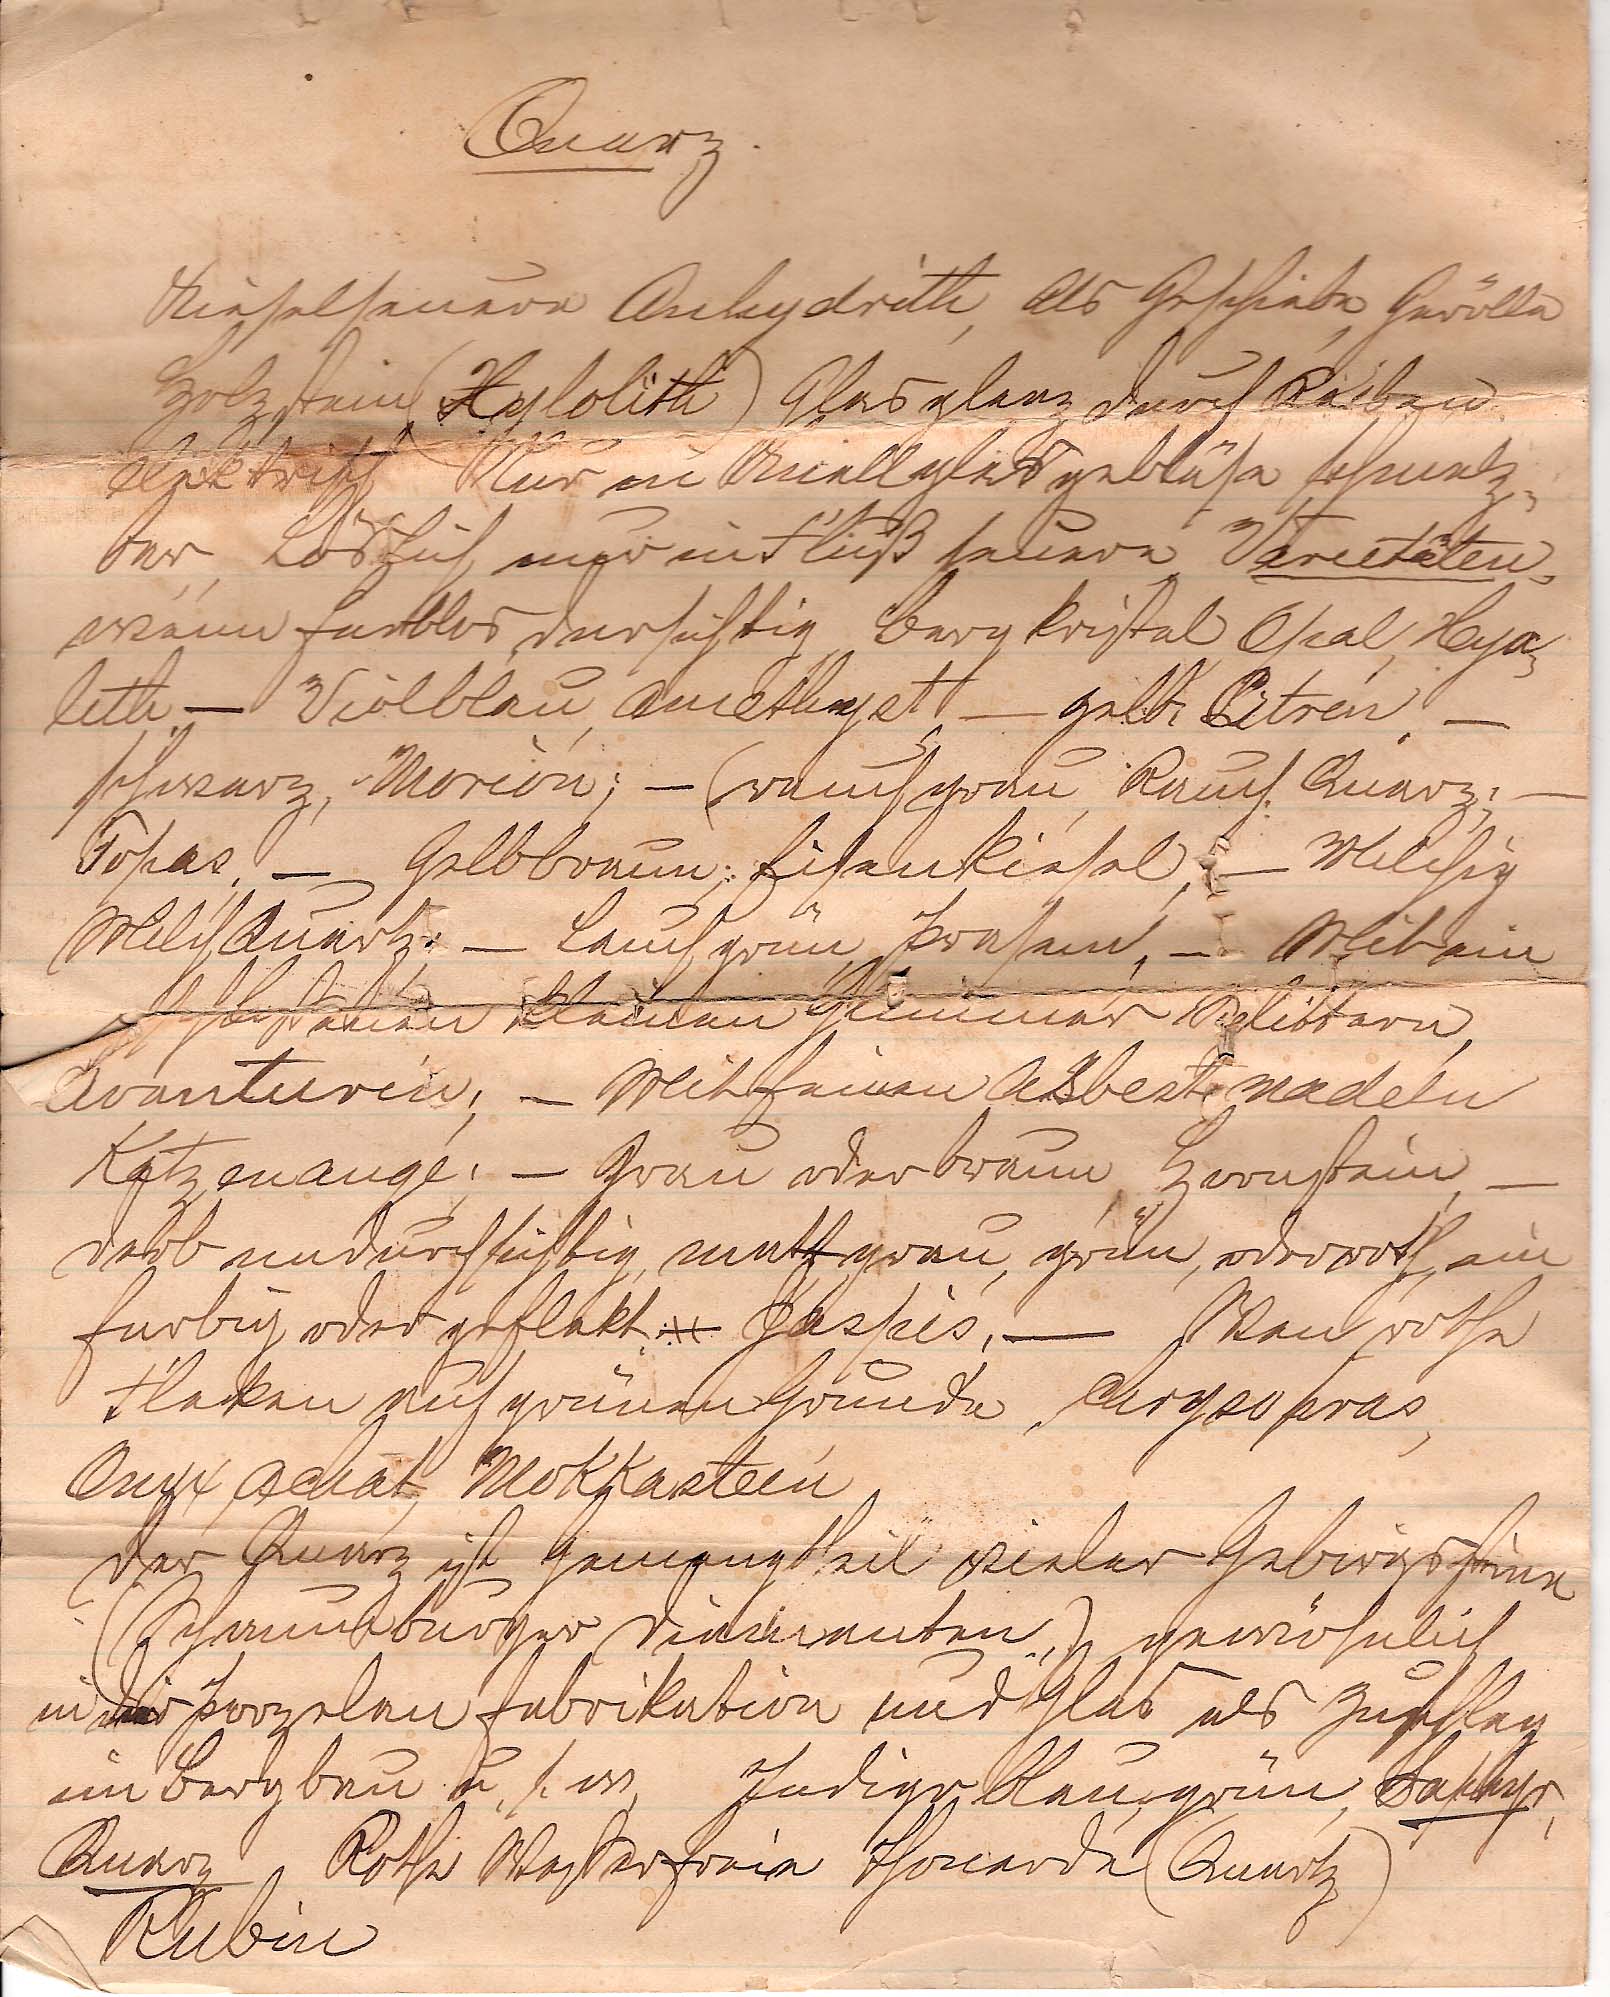 Quarz.
Kieselsauere Anhydrith, als Geschiebe, Gerölle
Holzstein (Hylolith) Glasglanz durch Reiben
elektrisch Nur in Knallgasgebläse schmelz-
bar, Löslich nur in Flußsauere Varietäten,
wenn farblos, dursichtig Bergkristal, Opal, Hya-
lith, — Violblau, Amethyst, — gelb, Citren, —
schwarz, Morion; — (rauchgrau, Rauch. Quarz; —
Topas, — Gelbbraun; Eisenkiesel, — Milchig
Milch Quartz: — Lauchgrün, Prasem, — Mit ein
kleinen Glimmer Splittern,
Avanturin; — Mit feinen Asbest nadeln
Katzenauge; — Grau oder braun Hornstein, —
derb undurchsichtig, matt grau, grün, oder roth, ein
farbig oder geflekt — Jaspis, — Wen rothe
Fleken auf grünen Grunde, Chrysopras,
Onyx, Achat, Mokkastein
Der Quarz ist Gemengtheil vieler Gebirgssteine
(Schaumburger Diamanten,) gewöhnlich
in der Porzelan fabrikation und Glas als Zuschlag
im Bergbau u. s. w. Indigo blau, grün, Saphyr,
Quarz Rothe Wasserfreie Thonerde (Quartz)
Rubin